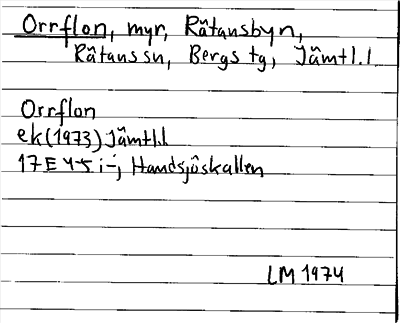 Orrflon, myr, Rätansbyn,
Rätans sn, Bergs tg, Jämtl. l
Orrflon
ek (1973) Jämtl.l
17E 4-5 i-j Handsjöskallen
LM 1974